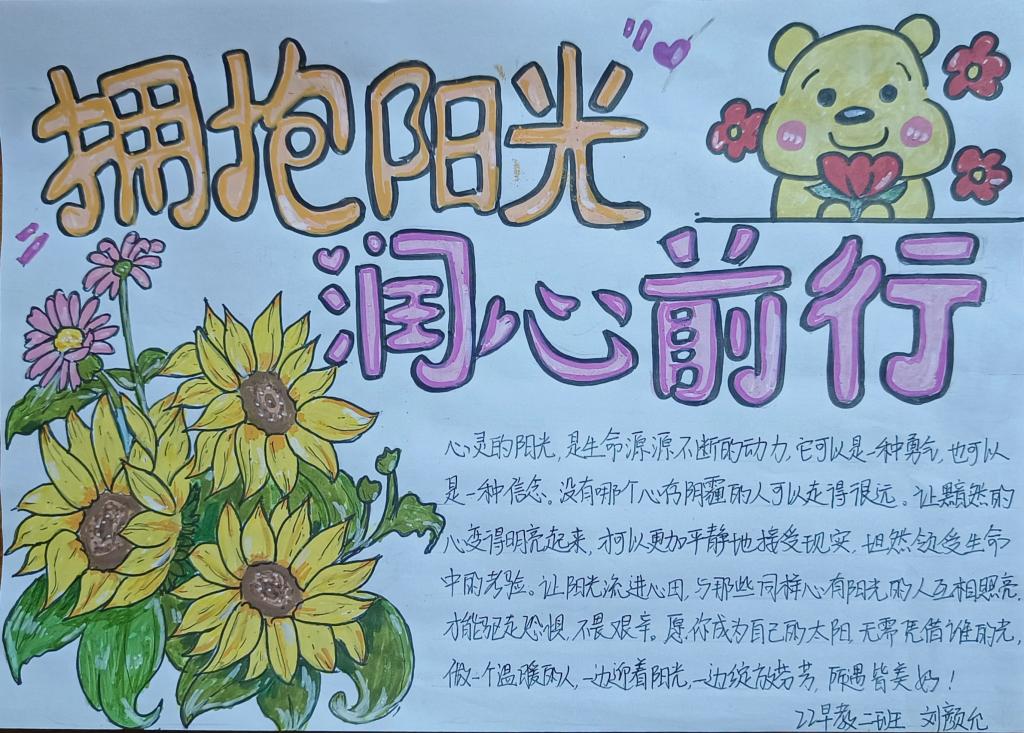 拥抱阳光
润心前行
心灵的阳光,是生命源源不断的动力,它可以是一种勇气,也可以
是一种信念。没有哪个心存阴霾的人可以走得很远。让黯然的
心变得明亮起来,才可以更加平静地接受现实,坦然领受生命
中的考验。让阳光流进心田,与那些同样心有阳光的人互相照亮,
才能驱走恐惧,不畏艰辛。愿你成为自己的太阳,无需凭借谁的光,
做一个温暖的人,一边迎着阳光,一边绽放芬芳,所遇皆美好!
22早教二班 刘颜允